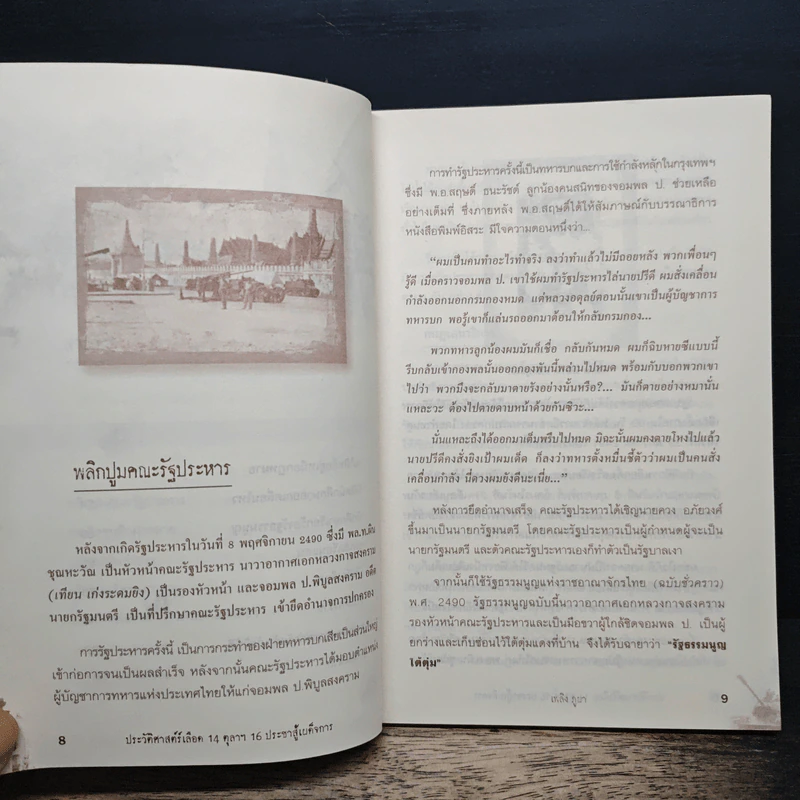 พลิกปูมคณะรัฐประหาร
หลังจากเกิดรัฐประหารในวันที่ 8 พฤศจิกายน 2490 ซึ่งมี พล.ท.ผิน
ชุณหะวัณ เป็นหัวหน้าคณะรัฐประหาร นาวาอากาศเอกหลวงกาจสงคราม
(เทียน เก่งระดมยิง) เป็นรองหัวหน้า และจอมพล ป.พิบูลสงคราม อดีต
นายกรัฐมนตรี เป็นที่ปรึกษาคณะรัฐประหาร เข้ายึดอำนาจการปกครอง
การรัฐประหารครั้งนี้ เป็นการกระทำของฝ่ายทหารบกเสียเป็นส่วนใหญ่
เข้าก่อการจนเป็นผลสำเร็จ หลังจากนั้นคณะรัฐประหารได้มอบตำแหน่ง
ผู้บัญชาการทหารแห่งประเทศไทยให้แก่จอมพล ป.พิบูลสงคราม
8 ประวัติศาสตร์เลือด 14 ตุลาฯ 16 ประชาสู้เผด็จการ
การทำรัฐประหารครั้งนี้เป็นทหารบกและการใช้กำลังหลักในกรุงเทพฯ
ซึ่งมี พ.อ.สฤษดิ์ ธนะรัชต์ ลูกน้องคนสนิทของจอมพล ป. ช่วยเหลือ
อย่างเต็มที่ ซึ่งภายหลัง พ.อ.สฤษดิ์ได้ให้สัมภาษณ์กับบรรณาธิการ
หนังสือพิมพ์อิสระ มีใจความตอนหนึ่งว่า...
"ผมเป็นคนทำอะไรทำจริง ลงว่าทำแล้วไม่มีถอยหลัง พวกเพื่อนๆ
รู้ดี เมื่อคราวจอมพล ป. เขาใช้ผมทำรัฐประหารไล่นายปรีดี ผมสั่งเคลื่อน
กำลังออกนอกกรมกองหมด แต่หลวงอดุลย์ตอนนั้นเขาเป็นผู้บัญชาการ
ทหารบก พอรู้เขาก็แล่นรถออกมาต้อนให้กลับกรมกอง...
พวกทหารลูกน้องผมมันก็เชื่อ กลับกันหมด ผมก็ฉิบหายซีแบบนี้
รีบกลับเข้ากองพลนั้นออกกองพันนี้พล่านไปหมด พร้อมกับบอกพวกเขา
ไปว่า พวกมึงจะกลับมาตายรังอย่างนั้นหรือ?... มันก็ตายอย่างหมานั่น
แหละวะ ต้องไปตายดาบหน้าด้วยกันซิวะ...
นั่นแหละถึงได้ออกมาเต็มพรืบไปหมด มิฉะนั้นผมคงตายโหงไปแล้ว
นายปรีดีคงสั่งยิงเป้าผมเด็ด ก็ลงว่าทหารตั้งหมื่นชี้ตัวว่าผมเป็นคนสั่ง
เคลื่อนกำลัง นี่ดวงผมยังดีนะเนี่ย..."
หลังการยึดอำนาจเสร็จ คณะรัฐประหารได้เชิญนายควง อภัยวงศ์
ขึ้นมาเป็นนายกรัฐมนตรี โดยคณะรัฐประหารเป็นผู้กำหนดผู้จะเป็น
นายกรัฐมนตรี และตัวคณะรัฐประหารเองก็ทำตัวเป็นรัฐบาลเงา
จากนั้นก็ใช้รัฐธรรมนูญแห่งราชอาณาจักรไทย (ฉบับชั่วคราว)
พ.ศ. 2490 รัฐธรรมนูญฉบับนี้นาวาอากาศเอกหลวงกาจสงคราม
รองหัวหน้าคณะรัฐประหารและเป็นมือขวาผู้ใกล้ชิดจอมพล ป. เป็นผู้
ยกร่างและเก็บซ่อนไว้ใต้ตุ่มแดงที่บ้าน จึงได้รับฉายาว่า "รัฐธรรมนูญ
ใต้ตุ่ม"
เพลิง ภูผา 9